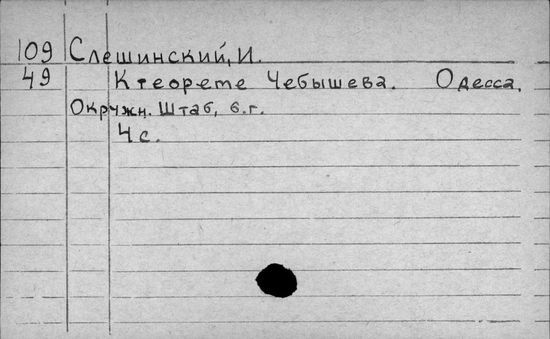 109 Слешинский, И.
49 К теореме Чебышева. Одесса,
Окружн. Штаб, б.г.
4 с.